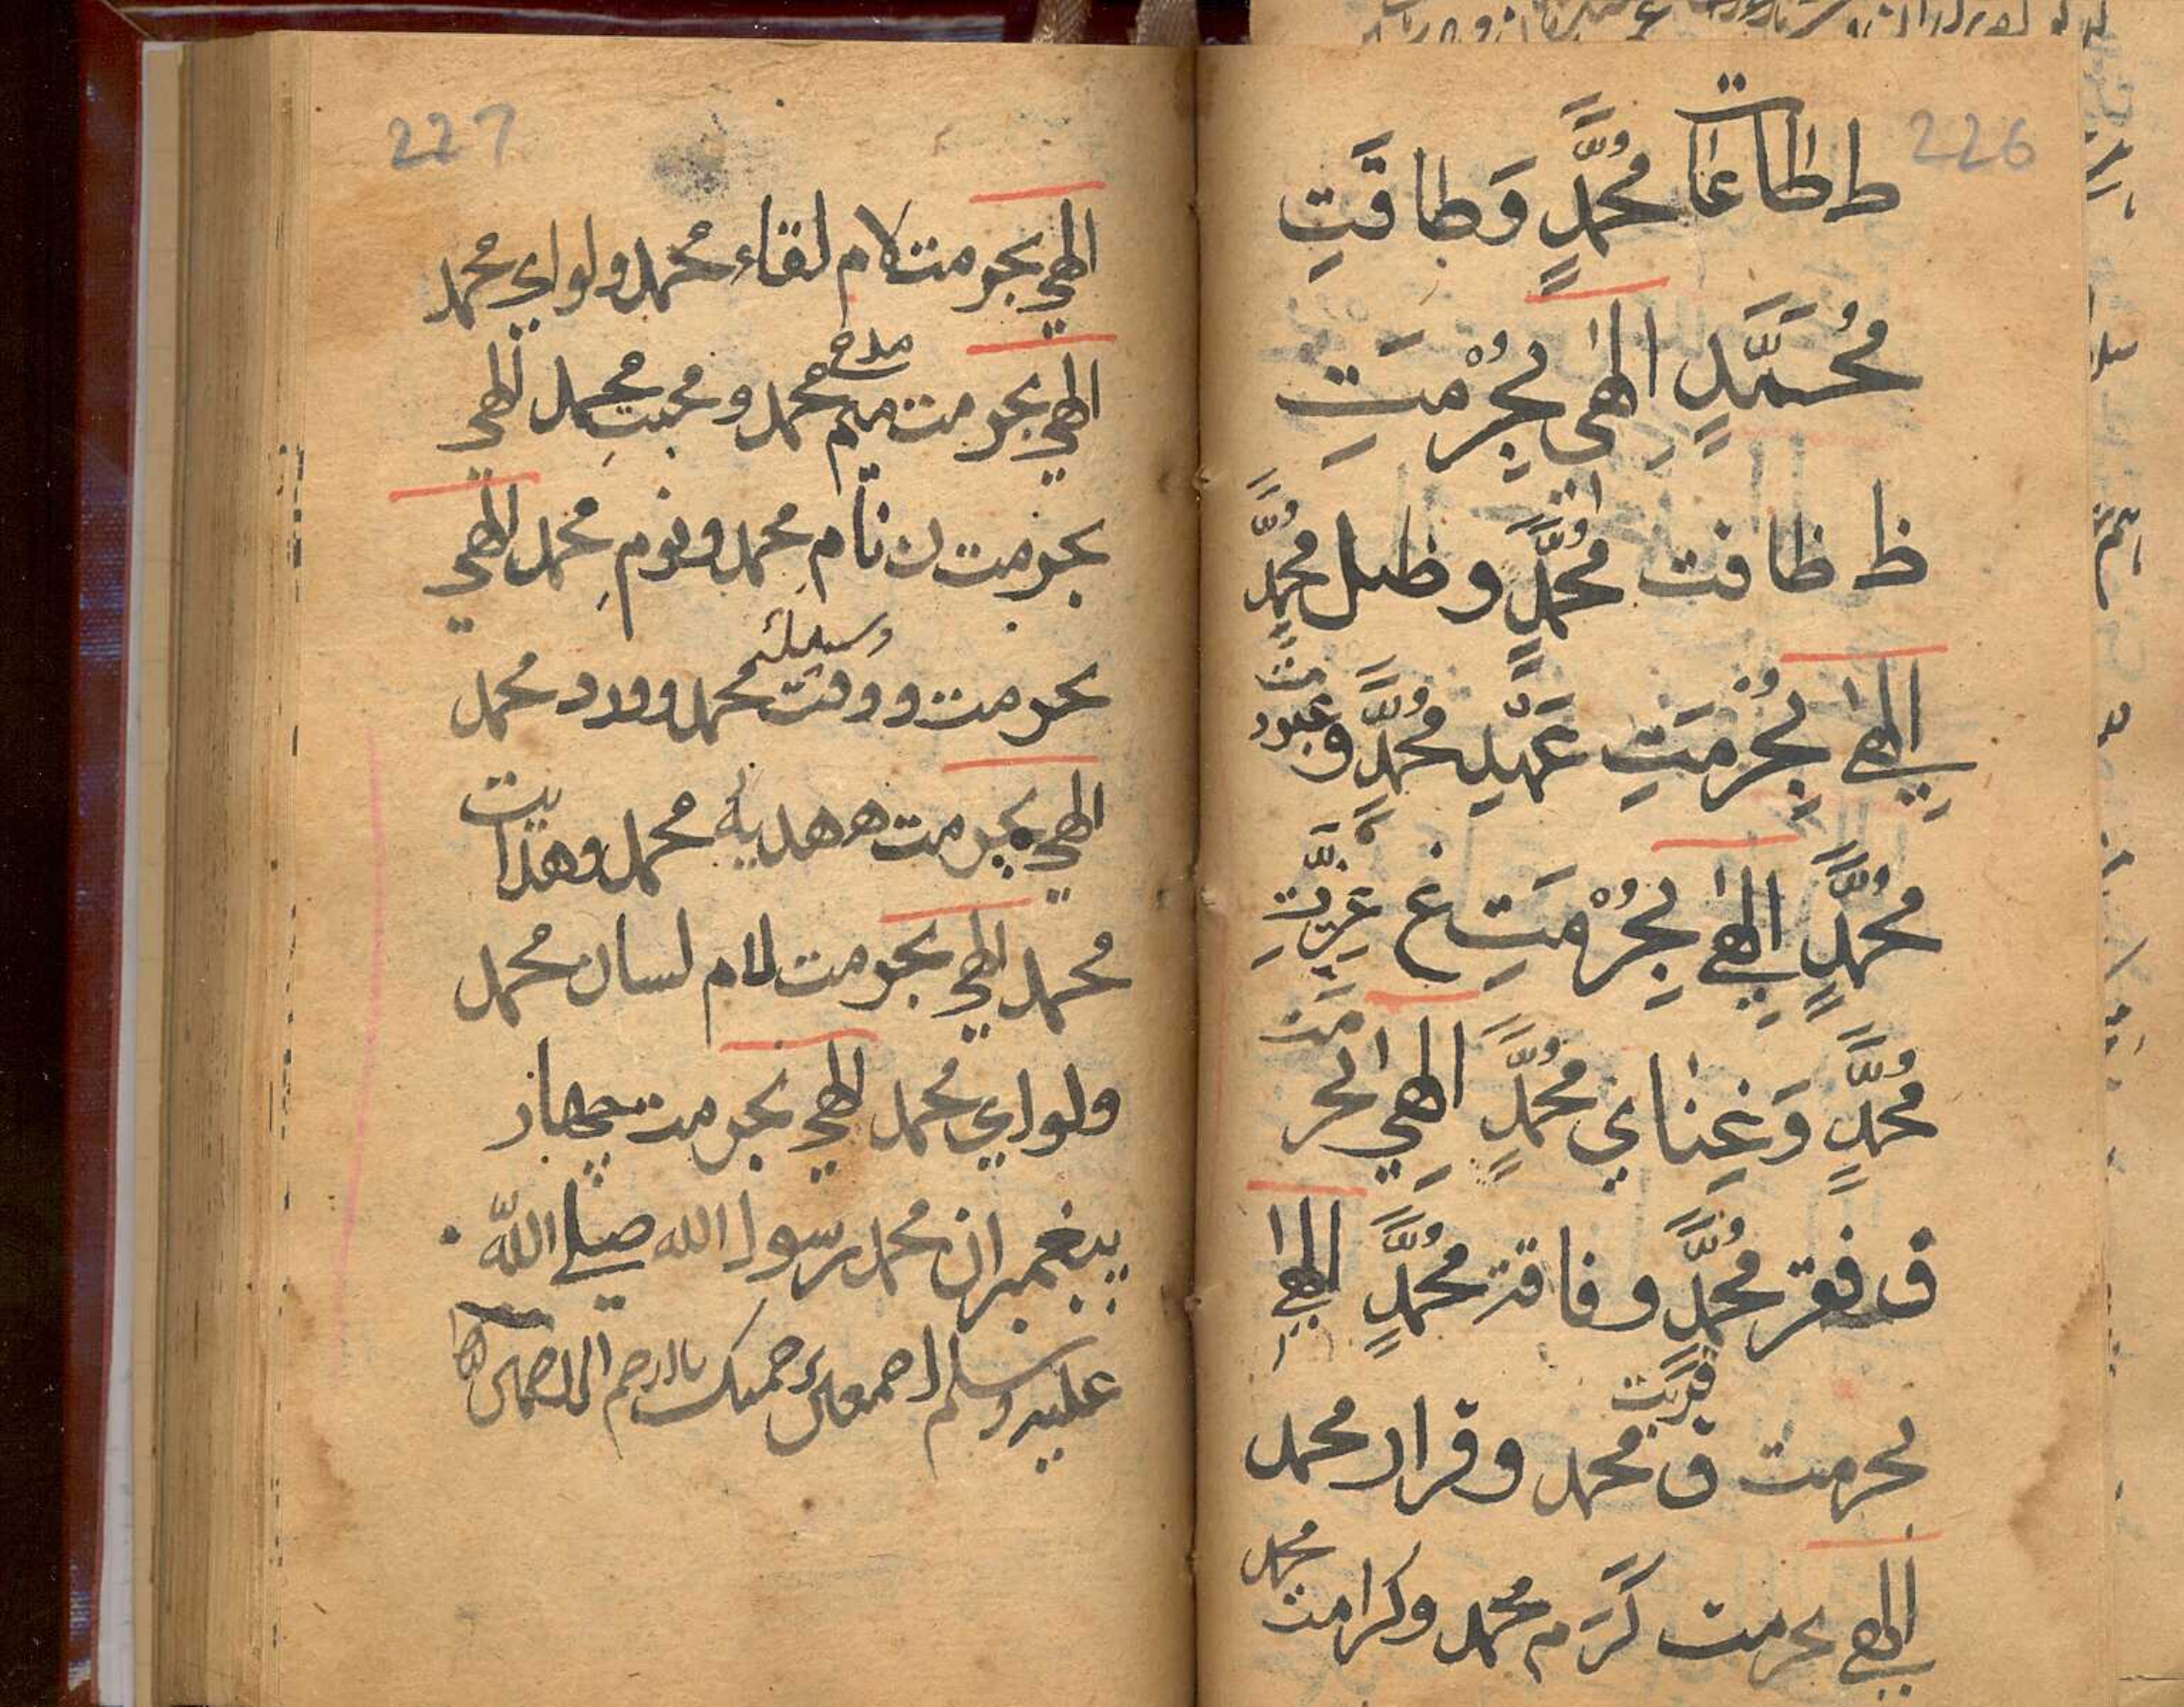 226
ط طاعات مُحَمَّدٍ وَطاقَتِ
مُحَمَّدٍ الٰهي بِحُرْمَتِ
ظ ظافت مُحَمَّدٍ وظل مُحَمَّدٍ
الٰهي بِحُرْمَتِ عَهْدِ مُحَمَّدٍ وعبود
يت
مُحَمَّدٍ الٰهي بِحُرْمَتِ غ عزيزت
مُحَمَّدٍ وَغِناي مُحَمَّدٍ الٰهي بحر
مت
ف فقر مُحَمَّدٍ وفاقة مُحَمَّدٍ الٰهي
بحرمت ق قربت محمد وقرار محمد
الهي بحرمت كَرَم محمد وكرامت محمد
227
الهي بحرمت لام لقاء محمد ولواي محمد
الهي بحرمت ميم مدح محمد ومحبت محمد الهي
بحرمت ن نام محمد ونوم محمد الهي
بحرمت و وقت وسيلة محمد وورد محمد
الهي بحرمت ه هدية محمد وهدايت
محمد الهي بحرمت لام لسان محمد
ولواي محمد الهي بحرمت چهار
پيغمبران محمد رسول الله صلي اللّه
عليه وسلم اجمعين برحمتك يا ارحم الراحمين